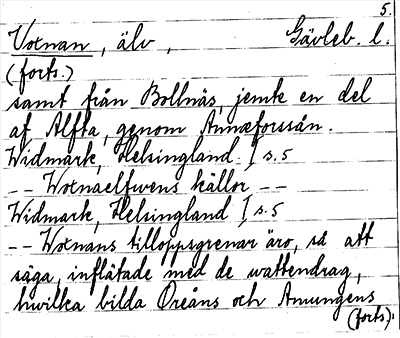 5.
Voxnan, älv, Gävleb. l.
(forts.)
samt från Bollnäs, jemte en del
af Alfta, genom Annæforssån.
Widmark, Helsingland. I s. 5
-- Woxnaelfwens källor --
Widmark, Helsingland I s. 5
-- Woxnans tilloppsgrenar äro, så att
säga, inflätade med de wattendrag,
hwilka bilda Oreåns och Amungens
(forts.)